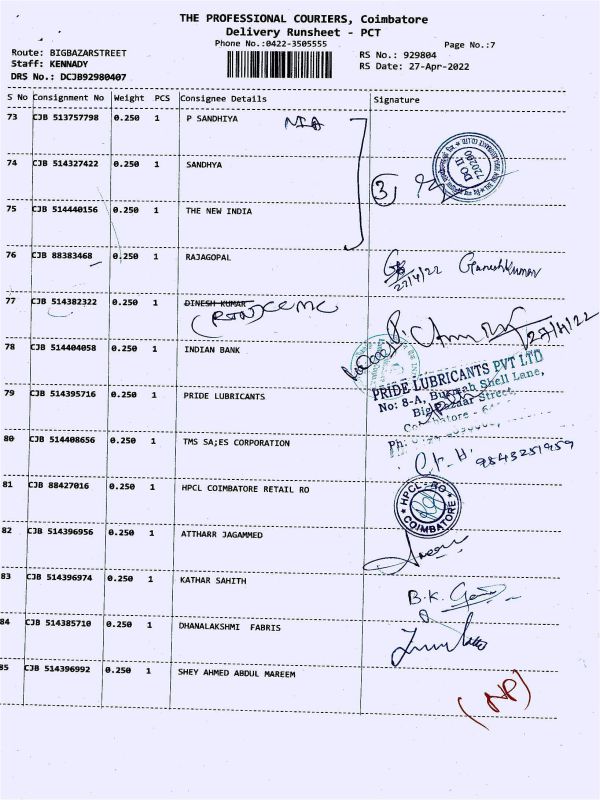 THE PROFESSIONAL COURIERS, Coimbatore
Delivery Runsheet - PCT
Phone No.:0422-3505555
Page No.:7
Route: BIGBAZARSTREET
Staff: KENNADY
DRS No.: DCJB92980407
RS No.: 929804
RS Date: 27-Apr-2022
S No Consignment No Weight PCS Consignee Details Signature
73 CJB 513757798 0.250 1 P SANDHIYA NIA
74 CJB 514327422 0.250 1 SANDHYA
3
75 CJB 514440156 0.250 1 THE NEW INDIA
76 CJB 88383468 0.250 1 RAJAGOPAL
27/4/22 Ganeshkumar
77 CJB 514382322 0.250 1 DINESH KUMAR
27/4/22
78 CJB 514404058 0.250 1 INDIAN BANK
PRIDE LUBRICANTS PVT LTD
No: 8-A, Burmah Shell Lane,
Big Bazaar Street,
79 CJB 514395716 1 0.250 1 PRIDE LUBRICANTS
80 CJB 514408656 0.250 1 TMS SA;ES CORPORATION
9843251959
81 CJB 88427016 0.250 1 HPCL COIMBATORE RETAIL RO
HPCL-RO
COIMBATORE
82 CJB 514396956 0.250 1 ATTHARR JAGAMMED
83 CJB 514396974 0.250 1 KATHAR SAHITH
B.K.
84 CJB 514385710 0.250 1 DHANALAKSHMI FABRIS
85 CJB 514396992 0.250 1 SHEY AHMED ABDUL MAREEM
(NP)